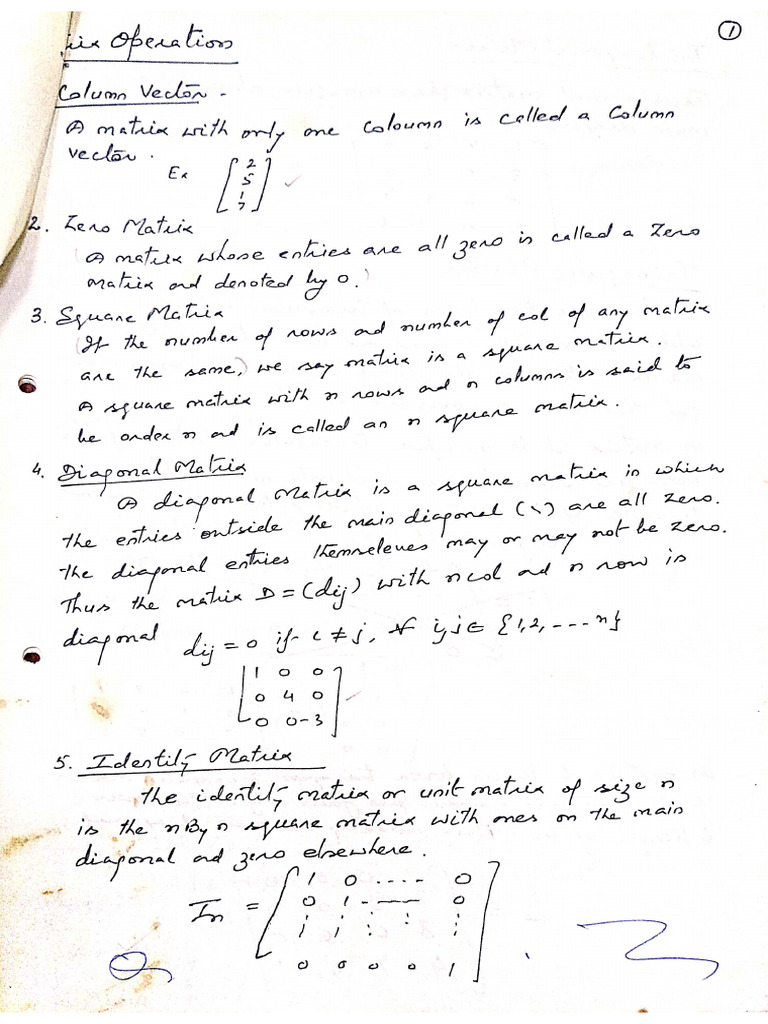 ①
ix Operation
Column Vector -
A matrix with only one coloumn is called a column
vector.
Ex [2
5
1
7]
2. Zero Matrix
A matrix whose entries are all zero is called a zero
matrix and denoted by 0.
3. Square Matrix
If the number of rows and number of col of any matrix
are the same, we say matrix is a square matrix.
A square matrix with n rows and n columns is said to
be order n and is called an n square matrix.
4. Diagonal Matrix
A diagonal matrix is a square matrix in which
the entries outside the main diagonal (↘) are all zero.
The diagonal entries themseleves may or may not be zero.
Thus the matrix D = (dij) with n col and n row is
diagonal dij = 0 if i ≠ j, ∀ i,j ∈ {1,2, ---- n}
[1 0 0
0 4 0
0 0 -3]
5. Identity Matrix
The identity matrix or unit matrix of size n
is the n By n square matrix with ones on the main
diagonal and zero elsewhere.
In = [1 0 ---- 0
0 1 ---- 0
⋮ ⋮ ⋮ ⋮ ⋮
0 0 0 0 1]